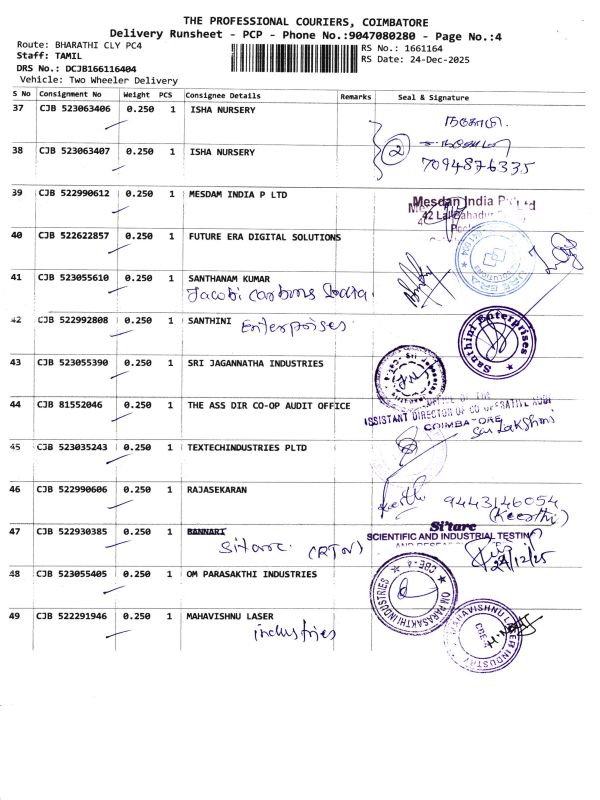 THE PROFESSIONAL COURIERS, COIMBATORE
Delivery Runsheet - PCP - Phone No.:9047080280 - Page No.:4
Route: BHARATHI CLY PC4
RS No.: 1661164
Staff: TAMIL
RS Date: 24-Dec-2025
DRS No.: DCJB166116404
Vehicle: Two Wheeler Delivery
S No Consignment No Weight PCS Consignee Details Remarks Seal & Signature
37 CJB 523063406 0.250 1 ISHA NURSERY
2
38 CJB 523063407 0.250 1 ISHA NURSERY
7094876335
39 CJB 522990612 0.250 1 MESDAM INDIA P LTD
Mesdan India P Ltd
42 Lal Bahadur
40 CJB 522622857 0.250 1 FUTURE ERA DIGITAL SOLUTIONS
41 CJB 523055610 0.250 1 SANTHANAM KUMAR
Jacobi Carbons India.
42 CJB 522992808 0.250 1 SANTHINI Enterprises
Santhini Enterprises
43 CJB 523055390 0.250 1 SRI JAGANNATHA INDUSTRIES
44 CJB 81552046 0.250 1 THE ASS DIR CO-OP AUDIT OFFICE
OFFICE OF THE
ASSISTANT DIRECTOR OF CO OPERATIVE AUDI
COIMBATORE
Sri Lakshmi
45 CJB 523035243 0.250 1 TEXTECHINDUSTRIES PLTD
46 CJB 522990606 0.250 1 RAJASEKARAN
Keerthi 9443146054
(Keerthi)
47 CJB 522930385 0.250 1 BANNARI
Sitarc (RTN)
Si'tarc
SCIENTIFIC AND INDUSTRIAL TESTING
24/12/25
48 CJB 523055405 0.250 1 OM PARASAKTHI INDUSTRIES
OM PARASAKTHI INDUSTRIES CBE-6
49 CJB 522291946 0.250 1 MAHAVISHNU LASER
industries
MAHAVISHNU LASER INDUSTRY